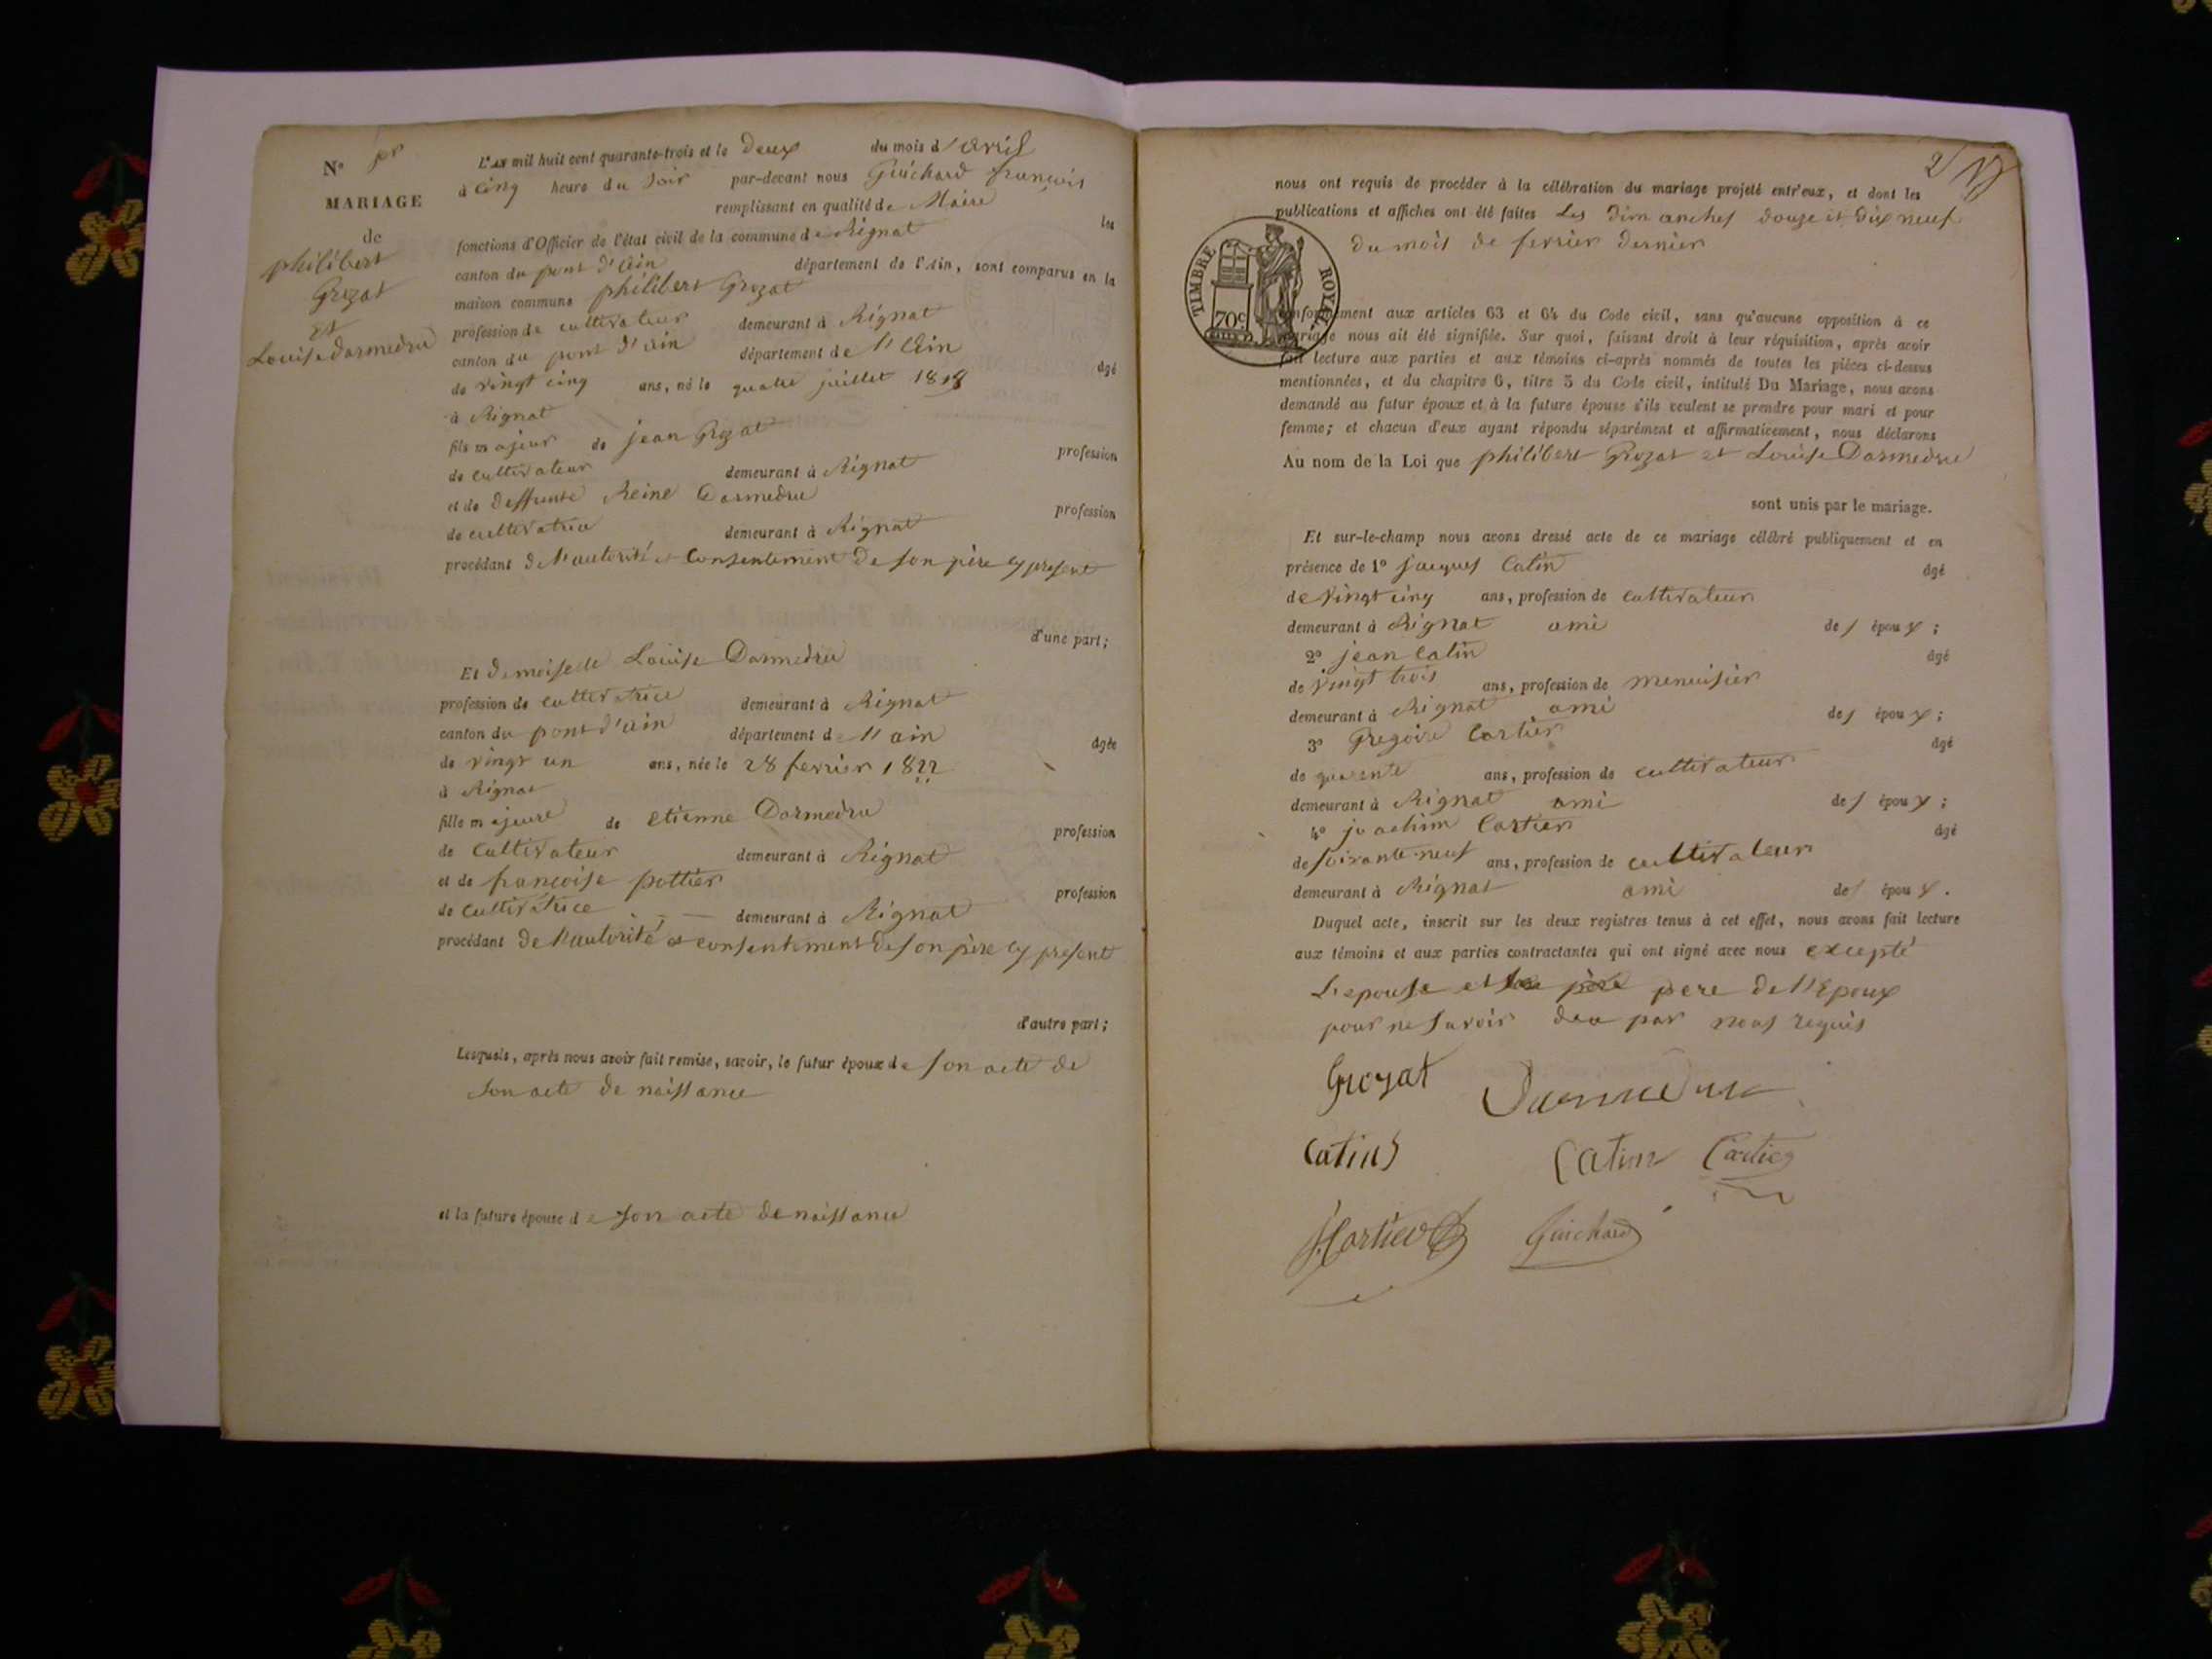 N° 1er
MARIAGE
de
philibert
Grozat
et
Louise Darmedru
L'an mil huit cent quarante-trois et le deux du mois d'avril
à cinq heure du soir par-devant nous Guichard françois
remplissant en qualité de Maire les
fonctions d'Officier de l'état civil de la commune de Rignat
canton du pont d'ain département de l'Ain, sont comparus en la
maison commune philibert Grozat
profession de cultivateur demeurant à Rignat
canton du pont d'ain département de l'Ain
âgé
de vingt cinq ans, né le quatre juillet 1818
à Rignat
fils majeur de jean Grozat
profession
de cultivateur demeurant à Rignat
et de deffunte Reine Darmedru
profession
de cultivatrice demeurant à Rignat
procédant de l'autorité et consentement de son père cy présent
d'une part;
Et demoiselle Louise Darmedru
profession de cultivatrice demeurant à Rignat
canton du pont d'ain département de l'ain
âgée
de vingt un ans, née le 28 fevrier 1822
à Rignat
fille majeure de etienne Darmedru
profession
de cultivateur demeurant à Rignat
et de françoise pottier
profession
de cultivatrice demeurant à Rignat
procédant de l'autorité et consentement de son père cy présent
d'autre part;
Lesquels, après nous avoir fait remise, savoir, le futur époux de son acte de
son acte de naissance
et la future épouse de son acte de naissance
2
nous ont requis de procéder à la célébration du mariage projeté entr'eux, et dont les
publications et affiches ont été faites Les dimanches douze et dix neuf
du mois de fevrier dernier
TIMBRE ROYAL
70c
conformément aux articles 63 et 64 du Code civil, sans qu'aucune opposition à ce
mariage nous ait été signifiée. Sur quoi, faisant droit à leur réquisition, après avoir
fait lecture aux parties et aux témoins ci-après nommés de toutes les pièces ci-dessus
mentionnées, et du chapitre 6, titre 5 du Code civil, intitulé Du Mariage, nous avons
demandé au futur époux et à la future épouse s'ils veulent se prendre pour mari et pour
femme; et chacun d'eux ayant répondu séparément et affirmativement, nous déclarons
Au nom de la Loi que philibert Grozat et Louise Darmedru
sont unis par le mariage.
Et sur-le-champ nous avons dressé acte de ce mariage célébré publiquement et en
présence de 1° jacques Catin âgé
de vingt cinq ans, profession de cultivateur
demeurant à Rignat ami des époux;
2° jean Catin âgé
de vingt trois ans, profession de menuisier
demeurant à Rignat ami des époux;
3° Gregoire Cartier âgé
de quarente ans, profession de cultivateur
demeurant à Rignat ami des époux;
4° joachim Cartier âgé
de soixante-neuf ans, profession de cultivateur
demeurant à Rignat ami des époux.
Duquel acte, inscrit sur les deux registres tenus à cet effet, nous avons fait lecture
aux témoins et aux parties contractantes qui ont signé avec nous excepté
L'epouse et pere de l'Epoux
pour ne savoir de ce par nous requis
Grozat Darmedru
Catin Catin Cartier
J Cartier Guichard